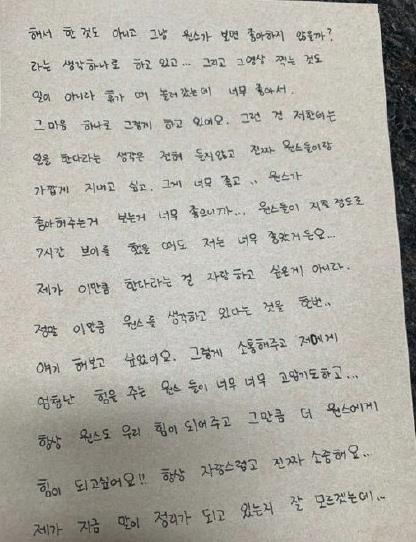 해서 한 것도 아니고 그냥 원스가 보면 좋아하지 않을까?
라는 생각하나로 하고 있고... 그리고 그 영상 찍는 것도
일이 아니라 휴가 때 놀러갔는데 너무 좋아서.
그 마음 하나로 그렇게 하고 있어요. 그런 건 저한테는
일을 한다라는 생각은 전혀 들지않고 진짜 원스들이랑
가깝게 지내고 싶고. 그게 너무 좋고.. 원스가
좋아해주는거 보는거 너무 좋으니까... 원스들이 지칠 정도로
7시간 브이를 했을 때도 저는 너무 좋았거든요...
제가 이만큼 한다라는 걸 자랑하고 싶은게 아니라.
정말 이만큼 원스를 생각하고 있다는 것을 한번..
얘기 해보고 싶었어요. 그렇게 소통해주고 저에게
엄청난 힘을 주는 원스 들이 너무 너무 고맙기도하고...
항상 원스도 우리 힘이 되어주고 그만큼 더 원스에게
힘이 되고싶어요!! 항상 자랑스럽고 진짜 소중해요..
제가 지금 말이 정리가 되고 있는지 잘 모르겠는데..